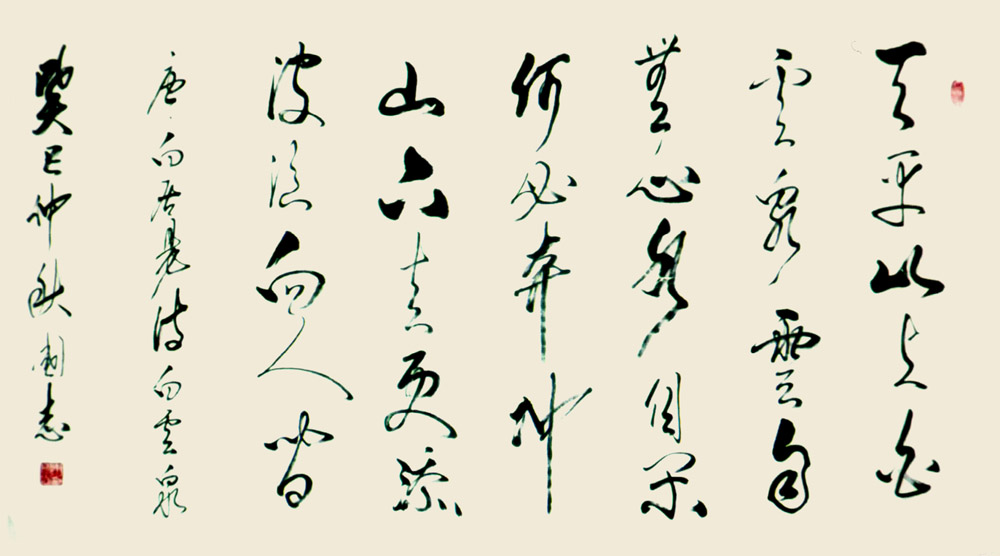 天平山上白
雲泉雲自
無心水自閑
何必奔冲
山下去更添
波浪向人間
唐白居易詩白雲泉
癸巳仲秋國志